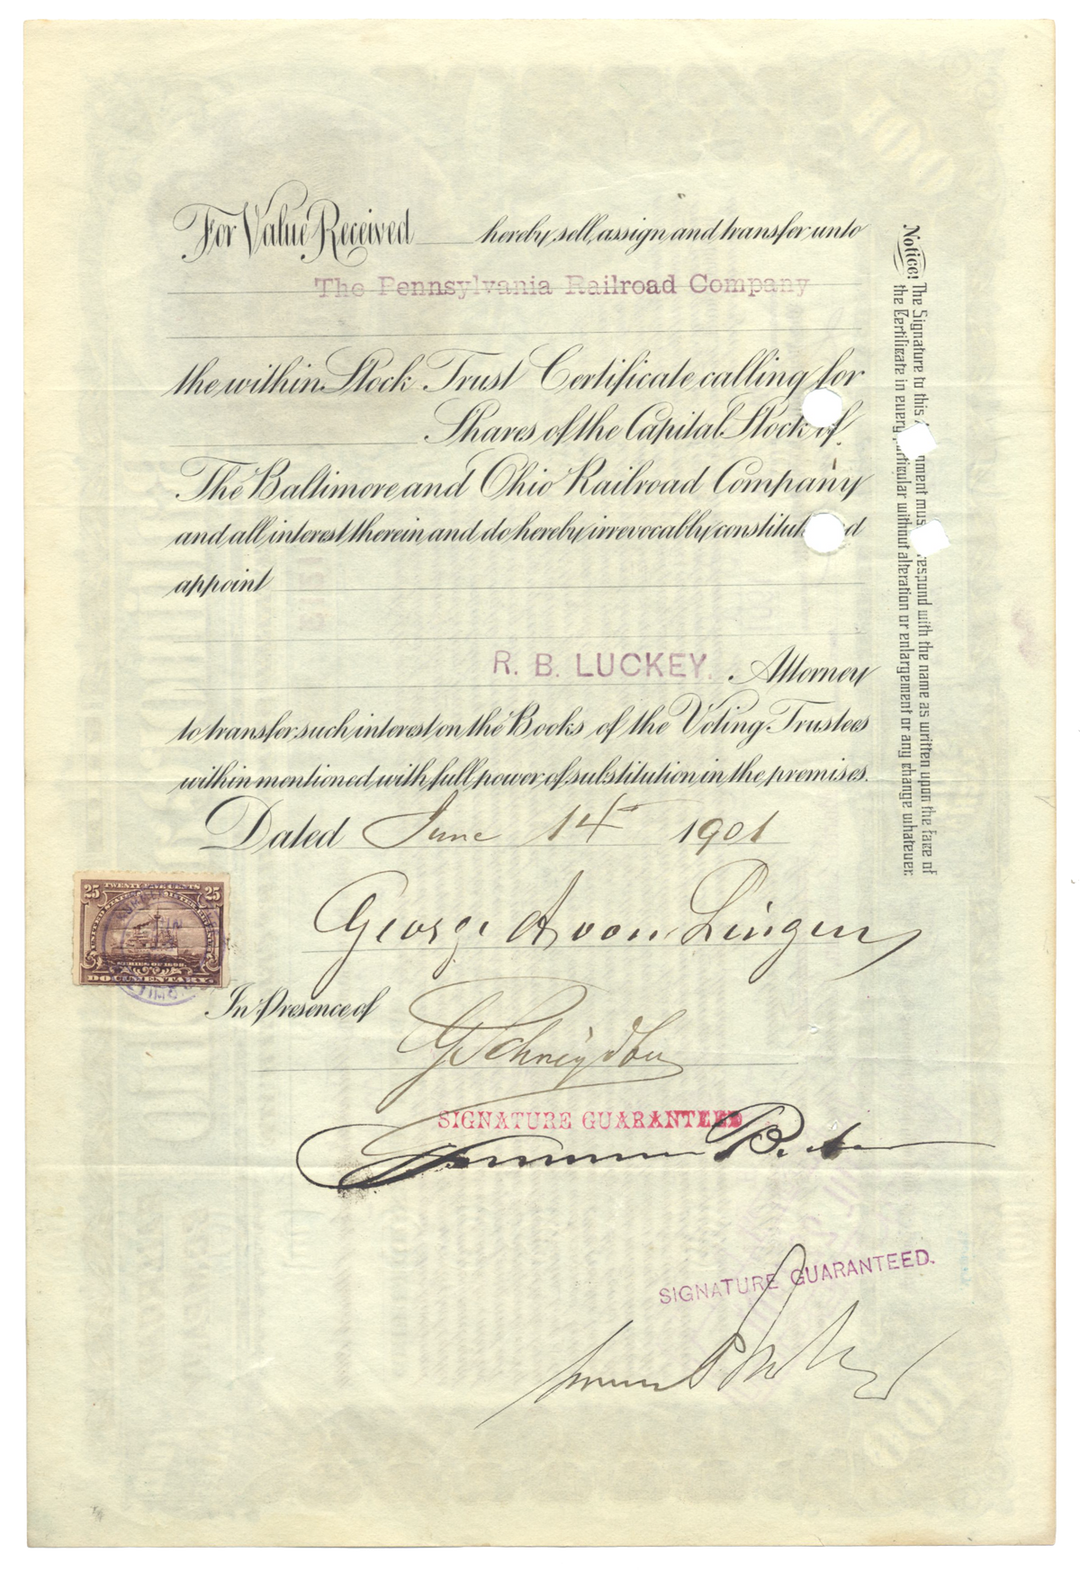 For Value Received hereby sell, assign and transfer unto
The Pennsylvania Railroad Company
the within Stock Trust Certificate calling for
Shares of the Capital Stock of
The Baltimore and Ohio Railroad Company
and all interest therein and do hereby irrevocably constitut d
appoint
R. B. LUCKEY. Attorney
to transfer such interest on the Books of the Voting Trustees
within mentioned with full power of substitution in the premises.
Dated June 14 1901
George A von Lingen
In Presence of
SIGNATURE GUARANTEED
SIGNATURE GUARANTEED.
Notice! The Signature to this nment mus respond with the name as written upon the face of
the Certificate in every rticular without alteration or enlargement or any change whatever.
25 TWENTY FIVE CENTS 25
SERIES OF 1898
DOCUMENTARY.
100
100